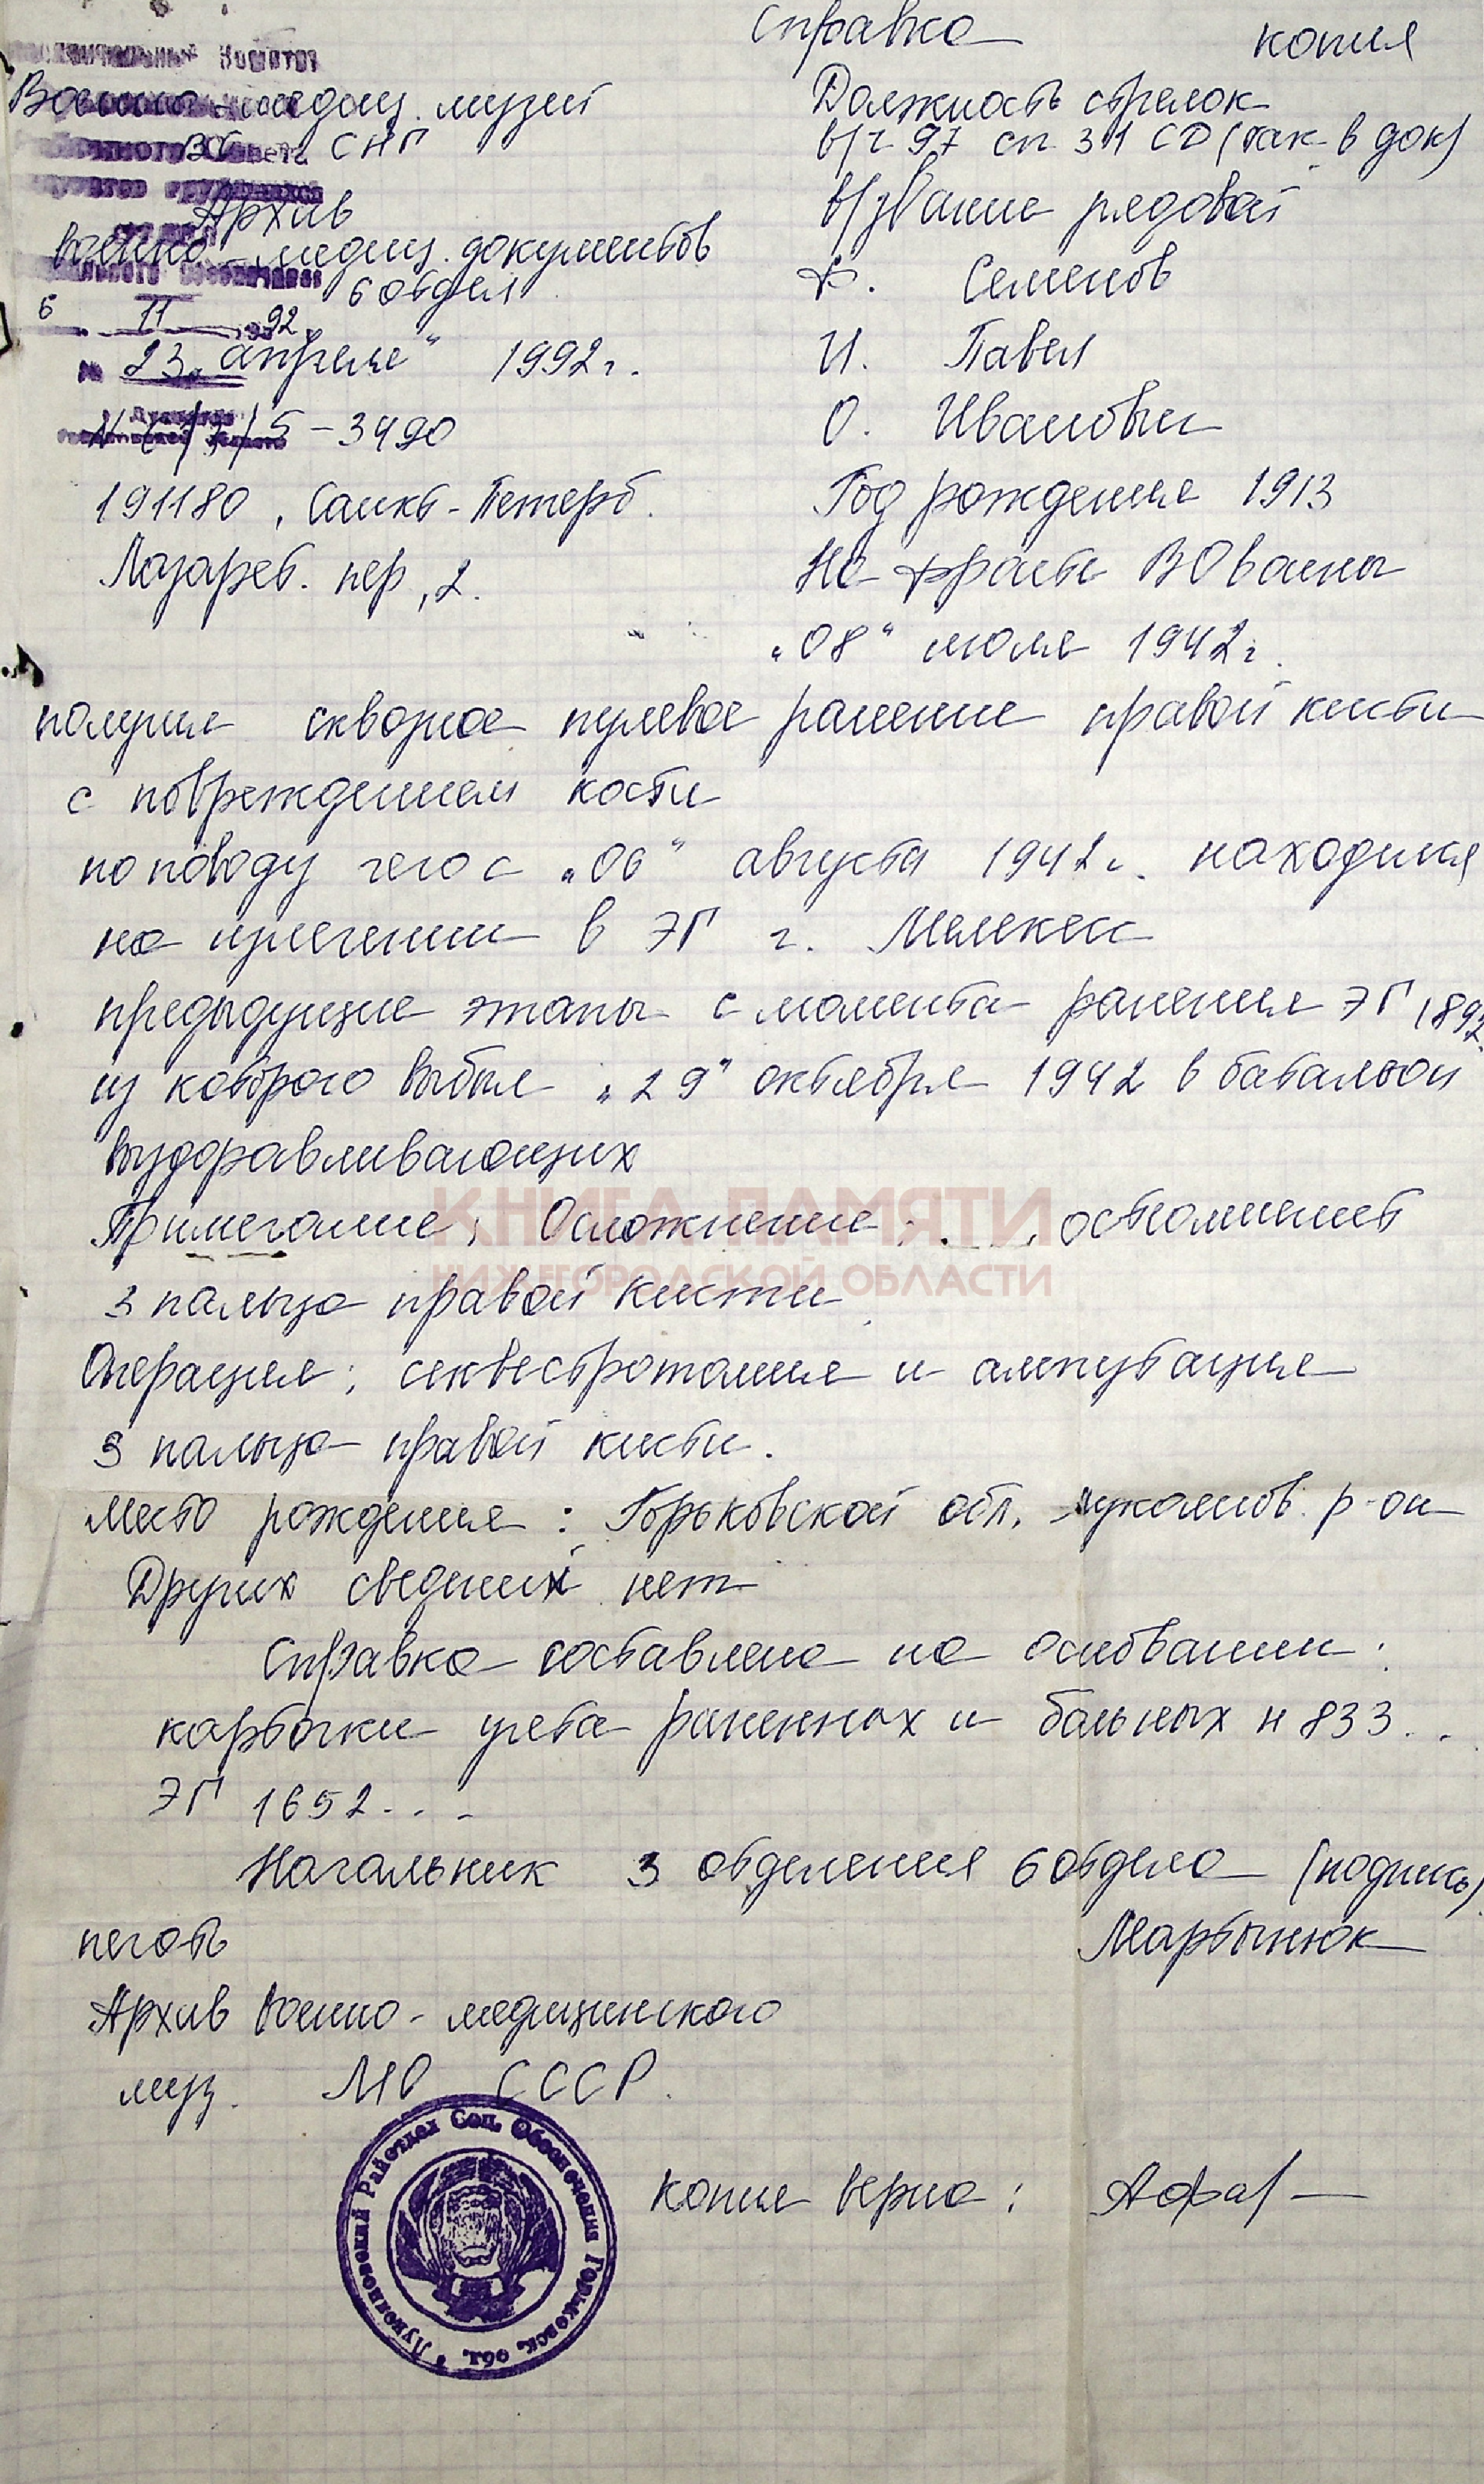 Справка копия
Военно-медиц. музей
ВС СНГ
Архив
военно-медиц. документов
6 отдел
6 11 92
"23" апреля 1992 г.
N 6/3/5-3490
191180, Санкт-Петерб.
Лазарев. пер, 2.
Должность стрелок
в/ч 97 сп 31 СД (так в док)
в/звание рядовой
Ф. Семенов
И. Павел
О. Иванович
Год рождения 1913
На фронте ВО войны
"08" июля 1942 г.
получил сквозное пулевое ранение правой кисти
с повреждением кости
по поводу чего с "06" августа 1942 г. находился
на излечении в ЭГ г. Мелекесс
предыдущие этапы с момента ранения ЭГ 1892
из которого выбыл "29" октября 1942 в батальон
выздоравливающих
Примечание; Осложнение: остеомиелит
3 пальца правой кисти
Операция; секвестротомия и ампутация
3 пальца правой кисти.
Место рождения: Горьковской обл. Лукоянов. р-он
Других сведений нет
Справка составлена на основании:
карточки учета раненных и больных н 833..
ЭГ 1652...
Начальник 3 отделения 6 отдела (подпись)
печать Мартынюк
Архив военно-медицинского
муз. МО СССР.
Копия верна:
Лукояновский Райотдел Соц. Обеспечения Горьковск. обл.
КНИГА ПАМЯТИ
НИЖЕГОРОДСКОЙ ОБЛАСТИ